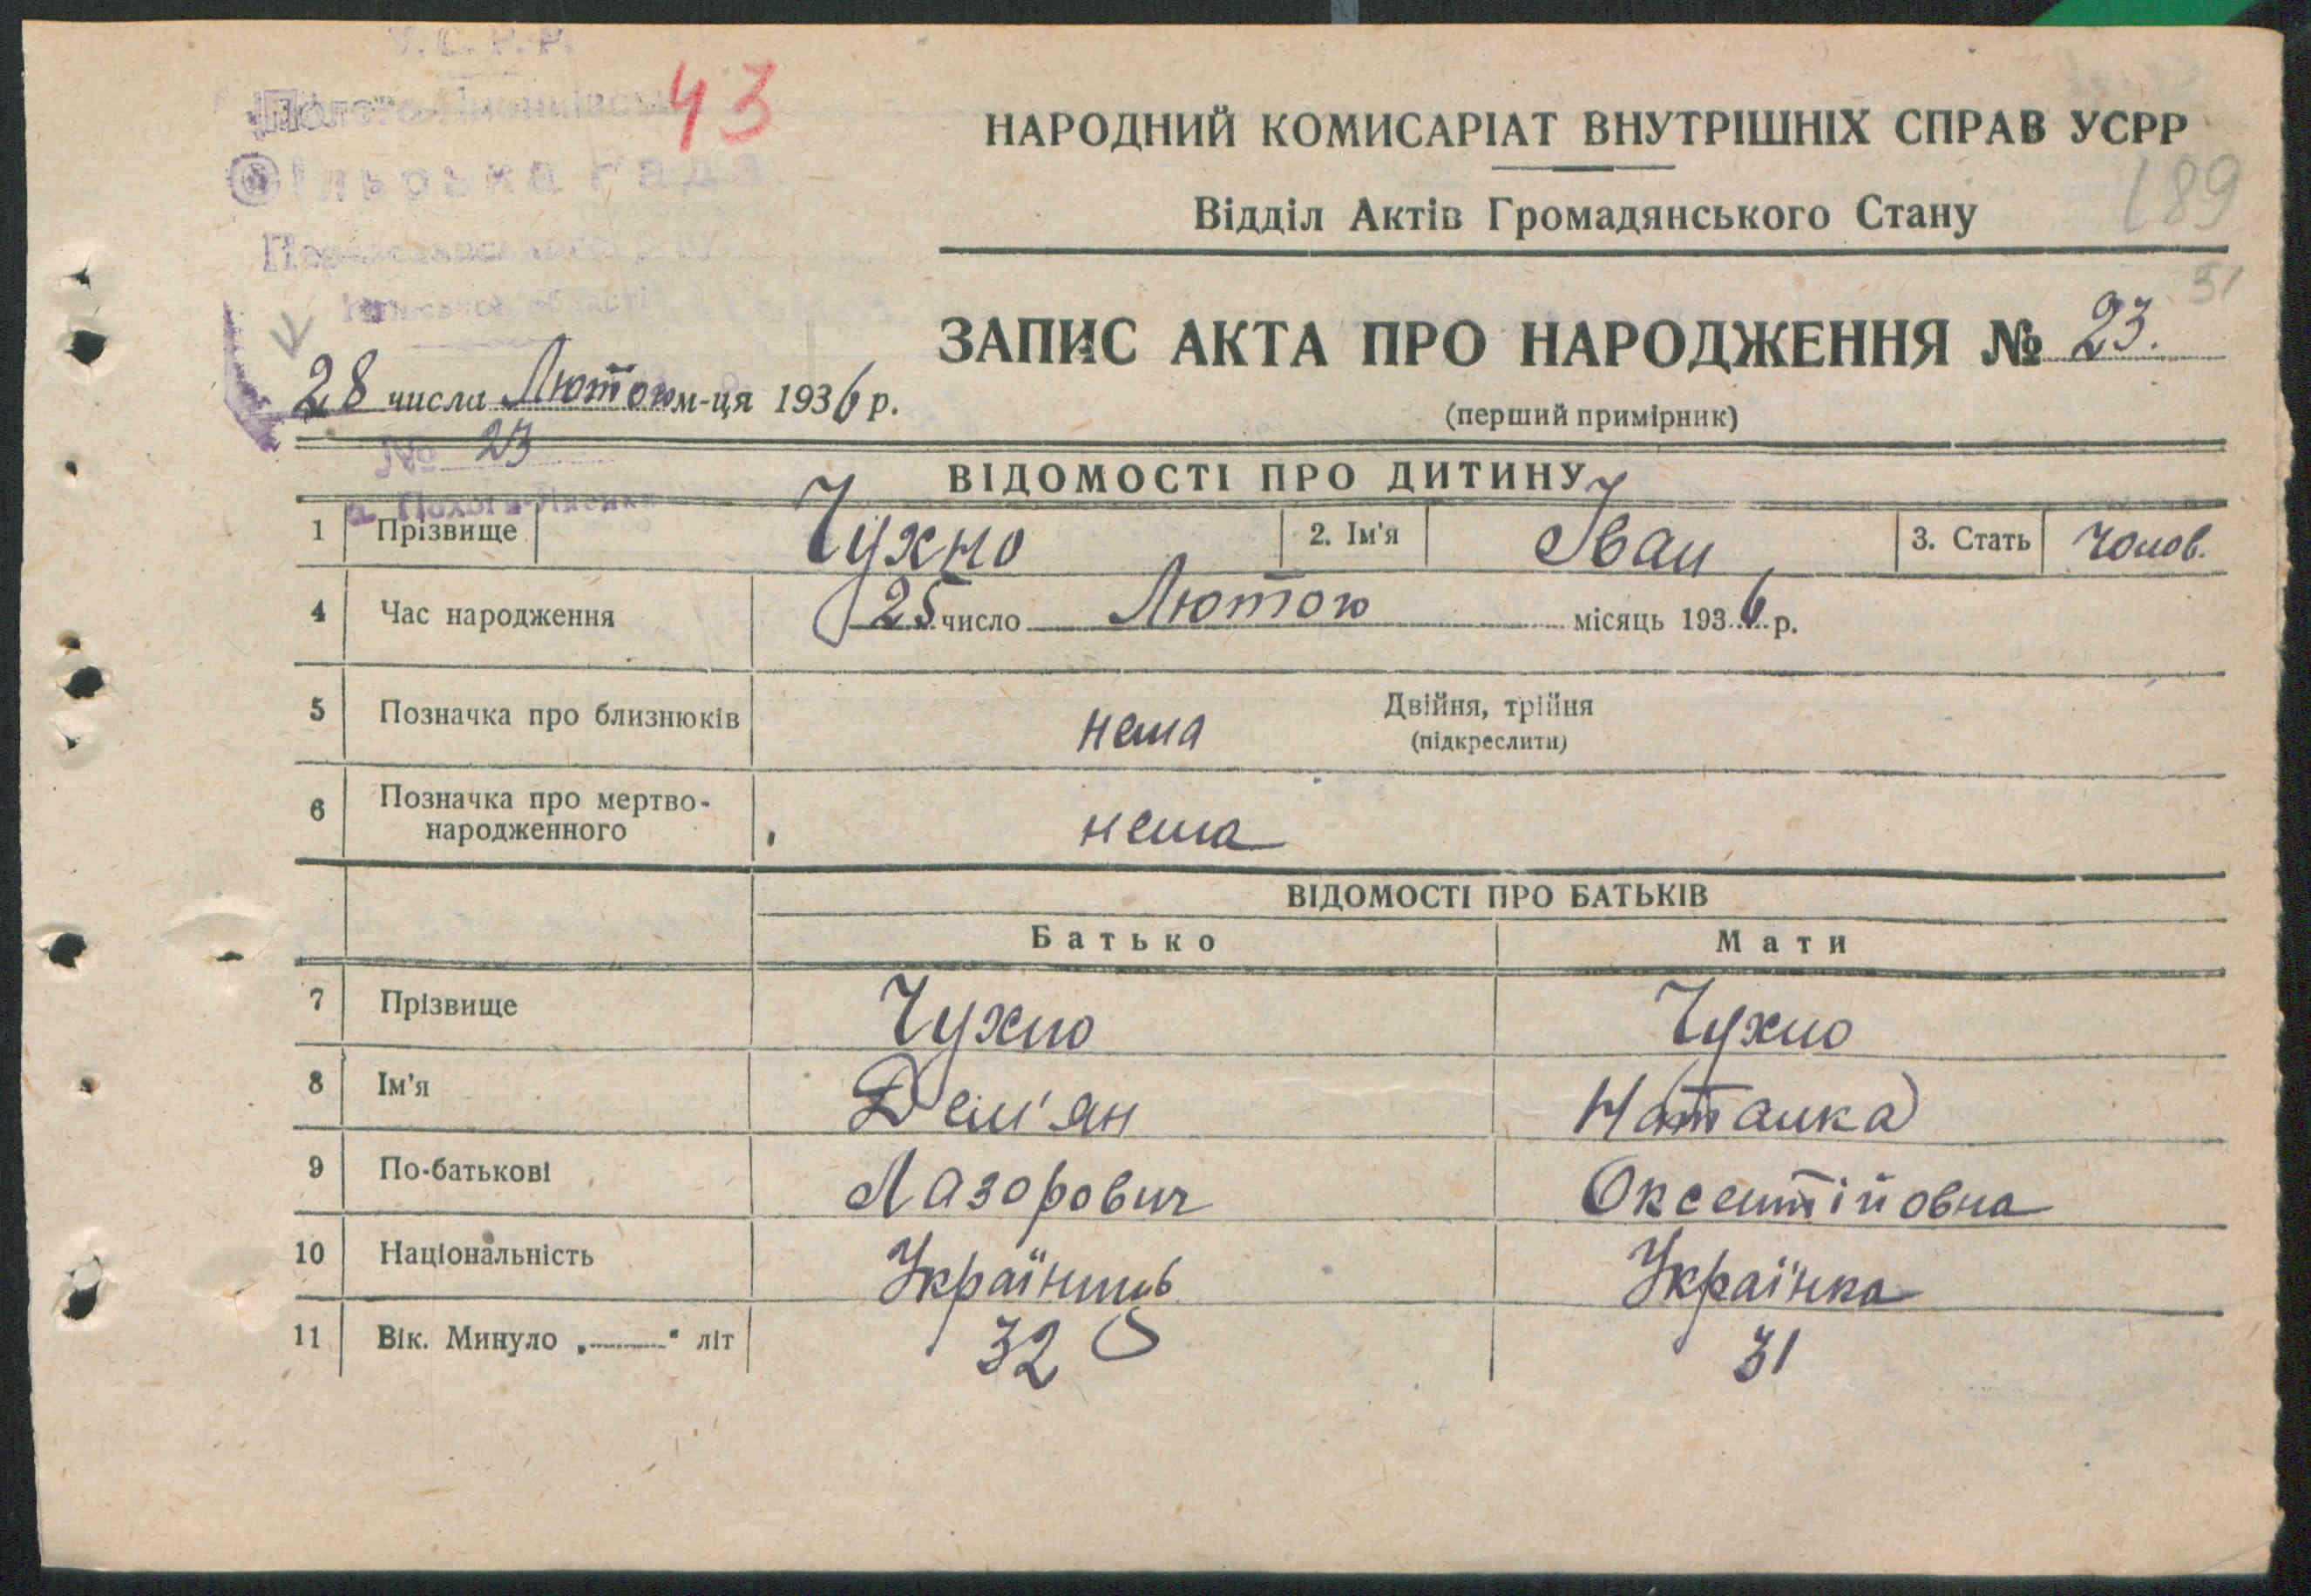 У. С. Р. Р.
43
Сільська Рада
області
НАРОДНИЙ КОМИСАРІАТ ВНУТРІШНІХ СПРАВ УСРР
189
Відділ Актів Громадянського Стану
51
ЗАПИС АКТА ПРО НАРОДЖЕННЯ № 23.
28 числа Лютого м-ця 1936 р.
(перший примірник)
№ 23
ВІДОМОСТІ ПРО ДИТИНУ
1 Прізвище Чухно 2. Ім'я Іван 3. Стать Чолов.
4 Час народження 25 число Лютого місяць 1936 р.
5 Позначка про близнюків нема Двійня, трійня
(підкреслити)
6 Позначка про мертво-
народженного нема
ВІДОМОСТІ ПРО БАТЬКІВ
Батько Мати
7 Прізвище Чухно Чухно
8 Ім'я Дем'ян Наталка
9 По-батькові Лазорович Оксентійовна
10 Національність Українець Українка
11 Вік. Минуло „ " літ 32 31